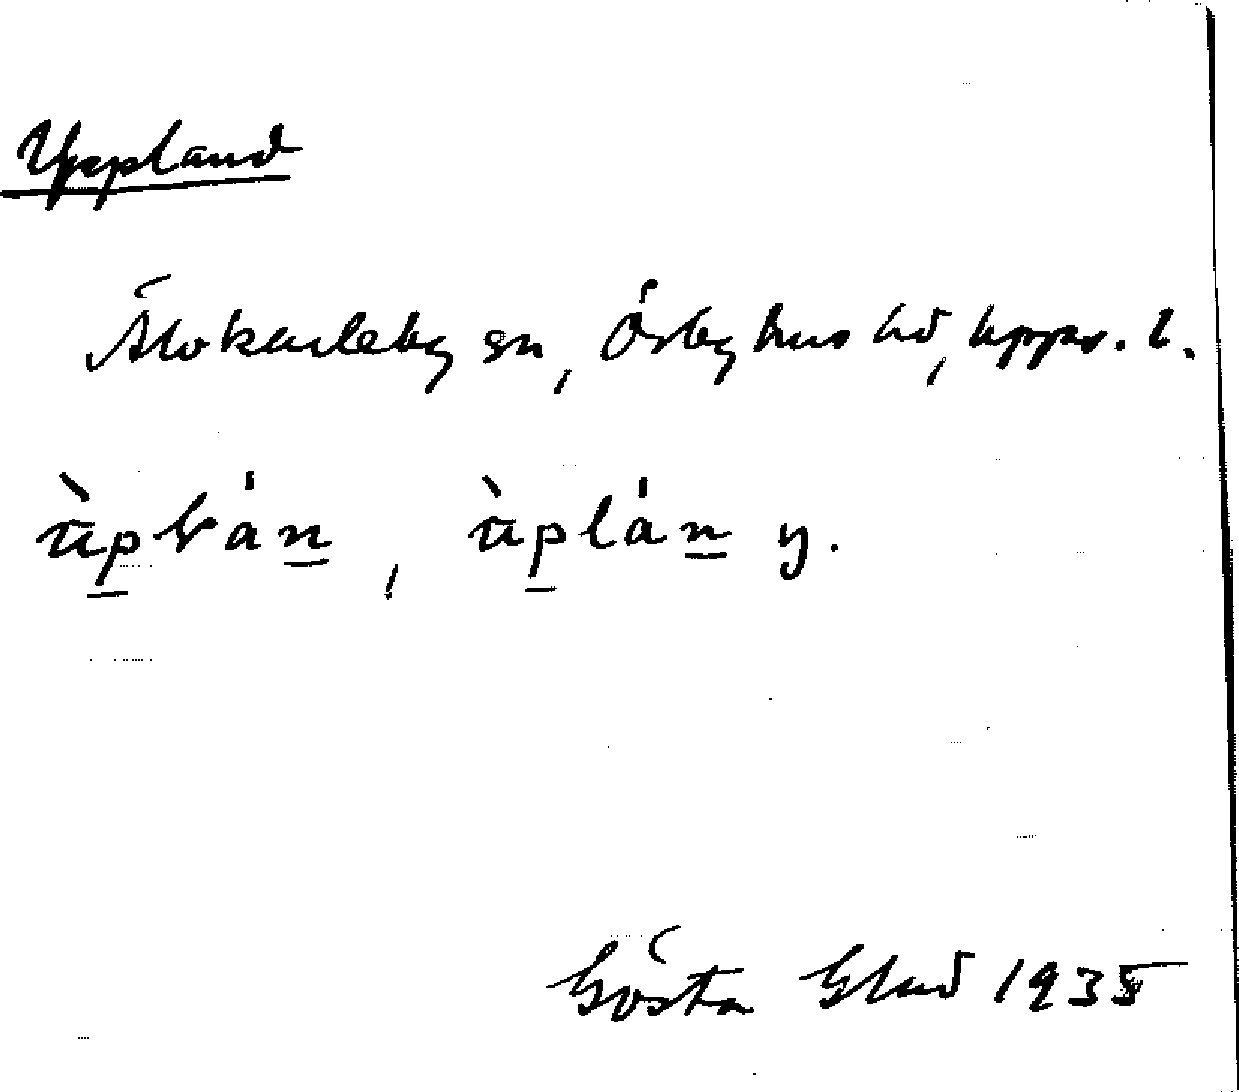 Uppland
Älvkarleby sn, Örbyhus hd, Upps. l.
ùplán, ùplán y.
Gösta Glad 1935